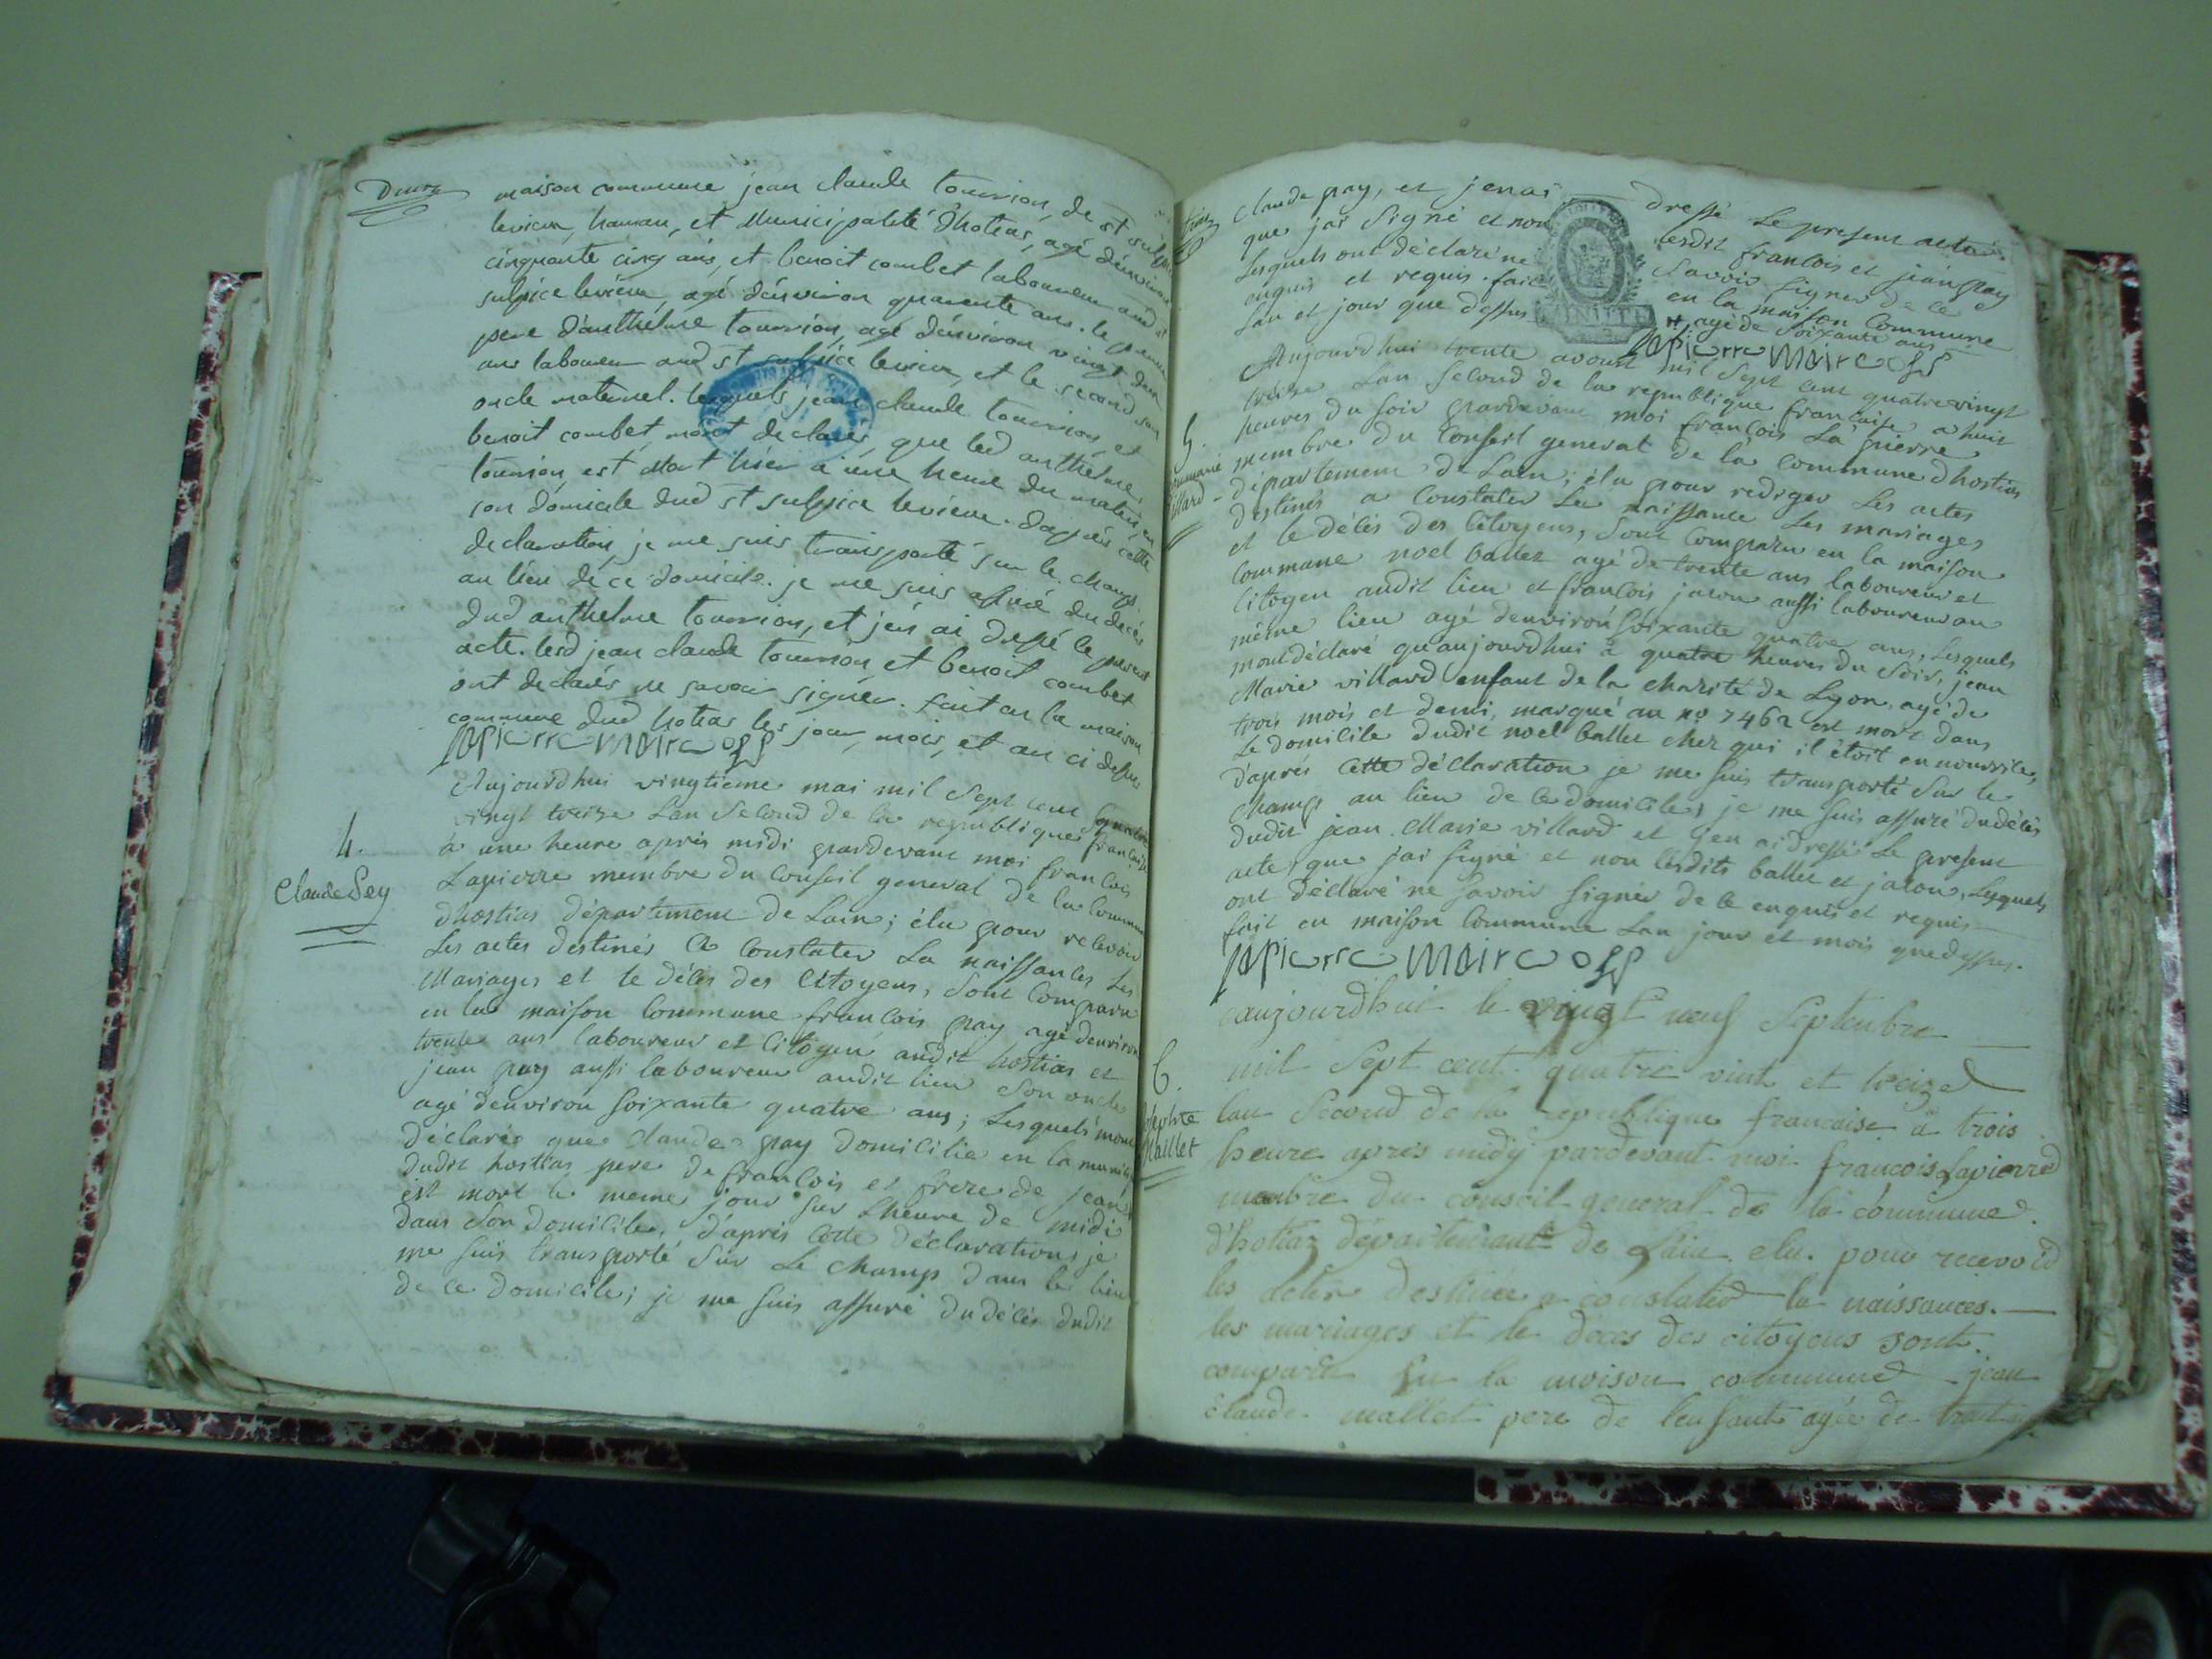 Deux
maison commune jean claude tournion, de st sulpice
levieux, hameau, et Municipalité d'hotias, agé d'environ
cinquante cinq ans, et benoit combet laboureur aud st
sulpice levieux, agé d'environ quarante ans. le premier
pere d'anthelme tournion, agé d'environ vingt deux
ans laboureur aud st sulpice levieux, et le second son
oncle maternel. lesquels jean claude tournion et
benoit combet, m'ont declarés, que led anthelme
tournion, est Mort hier à une heure du matin, en
son domicile dud st sulpice levieux. d'après cette
declaration, je me suis transporté sur le champ
au lieu de ce domicile. je me suis assuré du decés
dud anthelme tournion, et j'en ai dressé le present
acte. lesd jean claude tournion, et benoit combet
ont declarés ne savoir signer. fait en la maison
commune dud hotias les jour, mois, et an ci dessus
lapierre maire off
4.
Claude Pey
Aujourdhui vingtieme mai mil Sept cent quatre
vingt treize Lan Second de la republique française
à une heure aprés midi pardevant moi francois
Lapierre membre du Conseil general de la Commune
dhostias département de Lain; élu pour recevoir
Les actes destinés a Constater La naissances Les
Mariages et le décés des Citoyens, Sont Comparu
en la maison Commune francois pay agé denviron
trente ans laboureur et Citoyen audit hostias et
jean pay aussi laboureur audit lieu Son oncle
agé denviron soixante quatre ans; Lesquels mont
déclaré que claude pay domicilié en la
dudit hostias pere de francois et frere de jean
est mort le meme jour sur Lheure de midi
dans Son domicile, d'aprés cette déclaration je
me suis transporté Sur Le champ dans le lieu
de ce domicile; je me suis assuré du décés dudit
trois
Claude pay, et jenai dressé Le present acte
que jai Signé et non lesdit francois et jean pay
Lesquels ont déclaré ne Savoir signer de ce
enquis et requis. fait en la maison Commune
Lan et jour que dessus # agé de soixante ans
lapierre maire off
5.
villard
Aujourdhui trente avoust mil Sept cent quatrevingt
treize Lan Second de la republique française a huit
heures du soir pardevant moi françois La pierre
membre du Conseil general de la Commune dhostias
département de Lain; élu pour rediger Les actes
destinés a Constater La naissance Les mariages
et le décés des Citoyens, Sont Comparu en la maison
Commune noel ballet agé de trente ans laboureur et
Citoyen audit lieu et francois jacou aussi laboureur au
même lieu agé denviron soixante quatre ans, Lesquels
mont déclaré qu'aujourdhui à quatre heures du Soir, jean
Marie villard enfant de la charité de Lyon, agé de
trois mois et demi, marqué au no 7462 est mort dans
Le domicile dudit noel ballet chez qui il étoit en nourrice,
d'aprés cette déclaration je me suis transporté Sur le
champ au lieu de ce domicile, je me suis assuré du décés
dudit jean Marie villard et j'en ai dressé Le present
acte que jai signé et non lesdits ballet et jacou, Lesquels
ont déclaré ne savoir signer de ce enquis et requis
fait en maison Commune Lan jour et mois que dessus.
lapierre maire off
6.
Maillet
aujourdhui le vingt neuf Septenbre
mil Sept cent quatre vint et treize
lan Second de la republique francaise a trois
heure apres midy pardevant moi francois Lapierre
menbre du conseil general de la commune
d'hotiaz départemant de Lain elu pour recevoir
les actes destinée a constater la naissances.
les mariages et le deces des citoyens sont
comparu En la moison commune jean
claude mallet pere de lenfant agée de trante